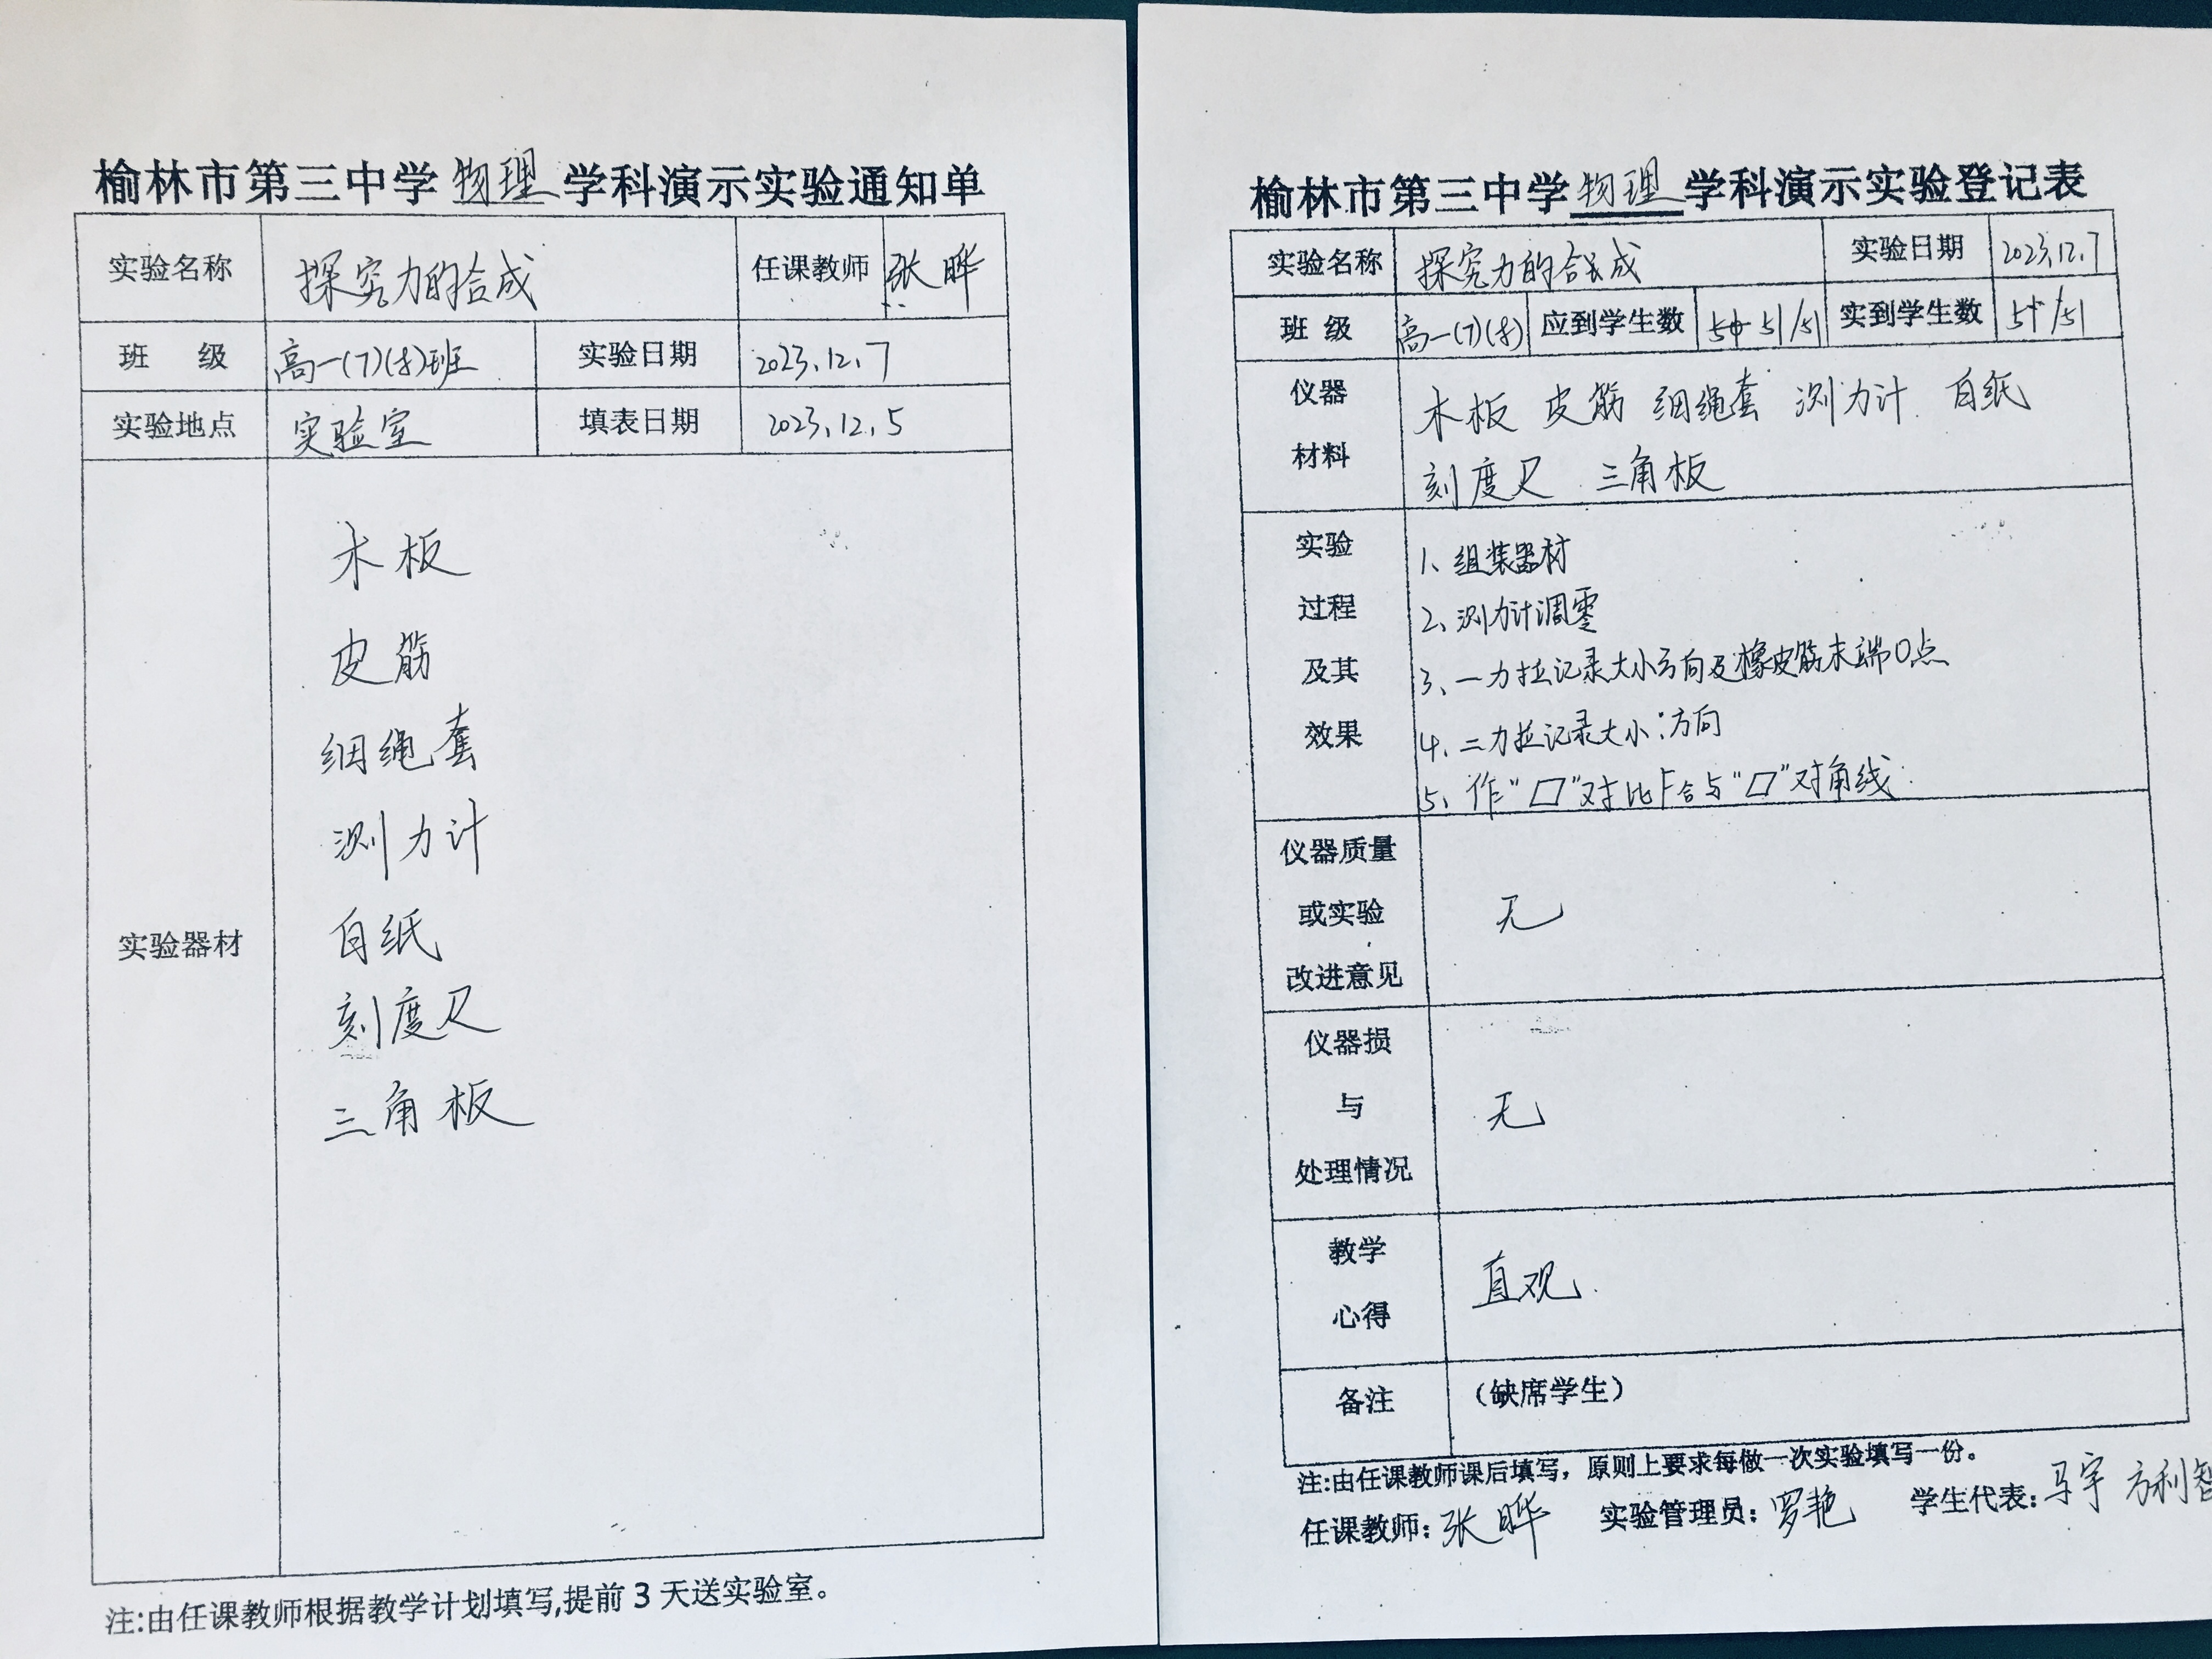 榆林市第三中学物理学科演示实验通知单
实验名称 探究力的合成 任课教师 张晔
班 级 高一(7)(8)班 实验日期 2023.12.7
实验地点 实验室 填表日期 2023.12.5
实验器材
木板
皮筋
细绳套
测力计
白纸
刻度尺
三角板
注:由任课教师根据教学计划填写,提前3天送实验室。
榆林市第三中学物理学科演示实验登记表
实验名称 探究力的合成 实验日期 2023.12.7
班 级 高一(7)(8) 应到学生数 51/51 实到学生数 /51
仪器 木板 皮筋 细绳套 测力计 白纸
材料 刻度尺 三角板
实验 1、组装器材
过程 2、测力计调零
及其 3、一力拉记录大小方向及橡皮筋末端O点
效果 4、二力拉记录大小.方向
5、作"▱"对比F合与"▱"对角线
仪器质量
或实验 无
改进意见
仪器损
与 无
处理情况
教学 直观
心得
备注 (缺席学生)
注:由任课教师课后填写,原则上要求每做一次实验填写一份。
任课教师:张晔 实验管理员:罗艳 学生代表:马宇 方利智